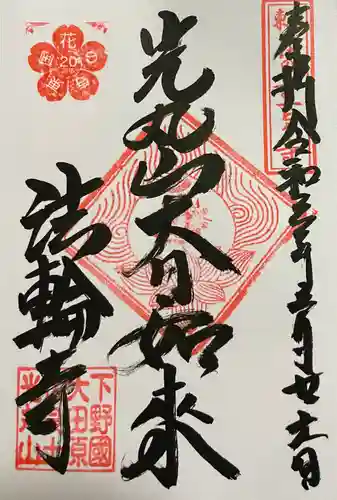 奉拝令和三年五月廿六日
光丸山大日如来
法輪寺
下野國
大田原
光丸山
花